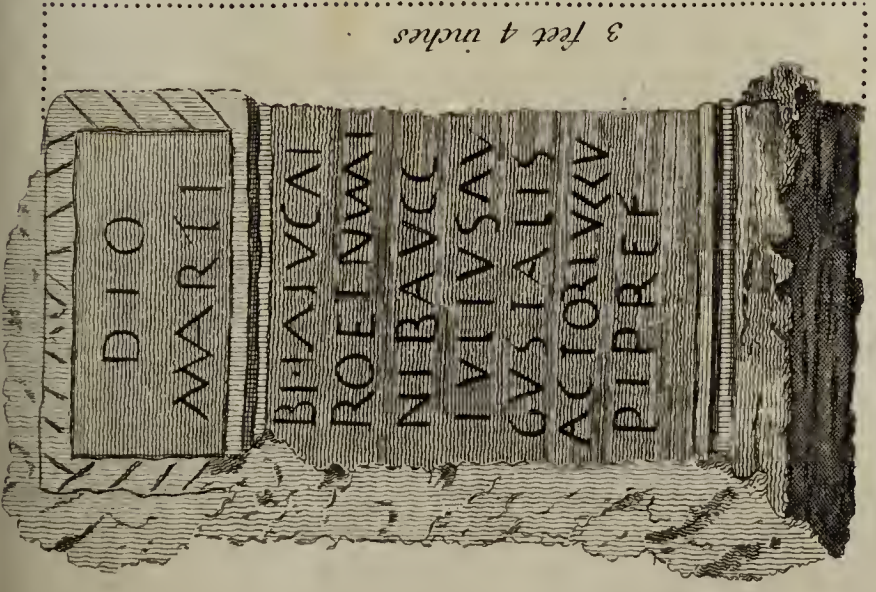 3 feet 4 inches
DIO
MARTI
BI·IAIVCAI
ROEINVMI
NIBAVCC
IVLIVSAV
GVSIALIS
ACTORIVLLV
PIPREF